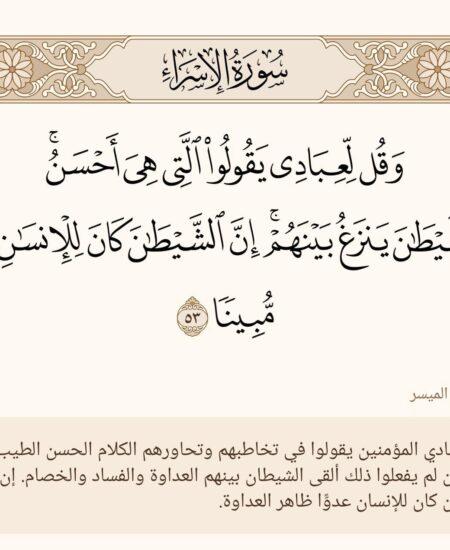 سُورَةُ الإِسۡرَاءِ
وَقُل لِّعِبَادِي يَقُولُواْ ٱلَّتِي هِيَ أَحۡسَنُۚ
يَنزَغُ بَيۡنَهُمۡۚ إِنَّ ٱلشَّيۡطَٰنَ كَانَ لِلۡإِنسَٰنِ
مُّبِينٗا ٥٣
الميسر
المؤمنين يقولوا في تخاطبهم وتحاورهم الكلام الحسن الطيب
لم يفعلوا ذلك ألقى الشيطان بينهم العداوة والفساد والخصام. إن
كان للإنسان عدوًّا ظاهر العداوة.